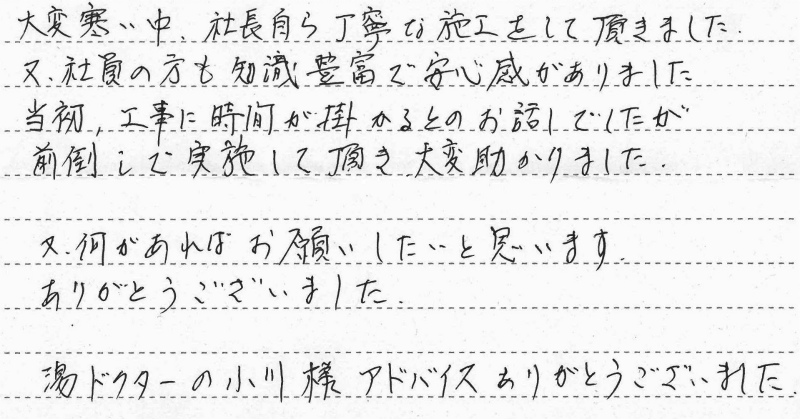 大変寒い中、社長自ら丁寧な施工をして頂きました.
又、社員の方も知識豊富で安心感がありました
当初,工事に時間が掛かるとのお話しでしたが
前倒しで実施して頂き大変助かりました.
又、何があればお願いしたいと思います.
ありがとうございました.
湯ドクターの小川様 アドバイスありがとうございました.